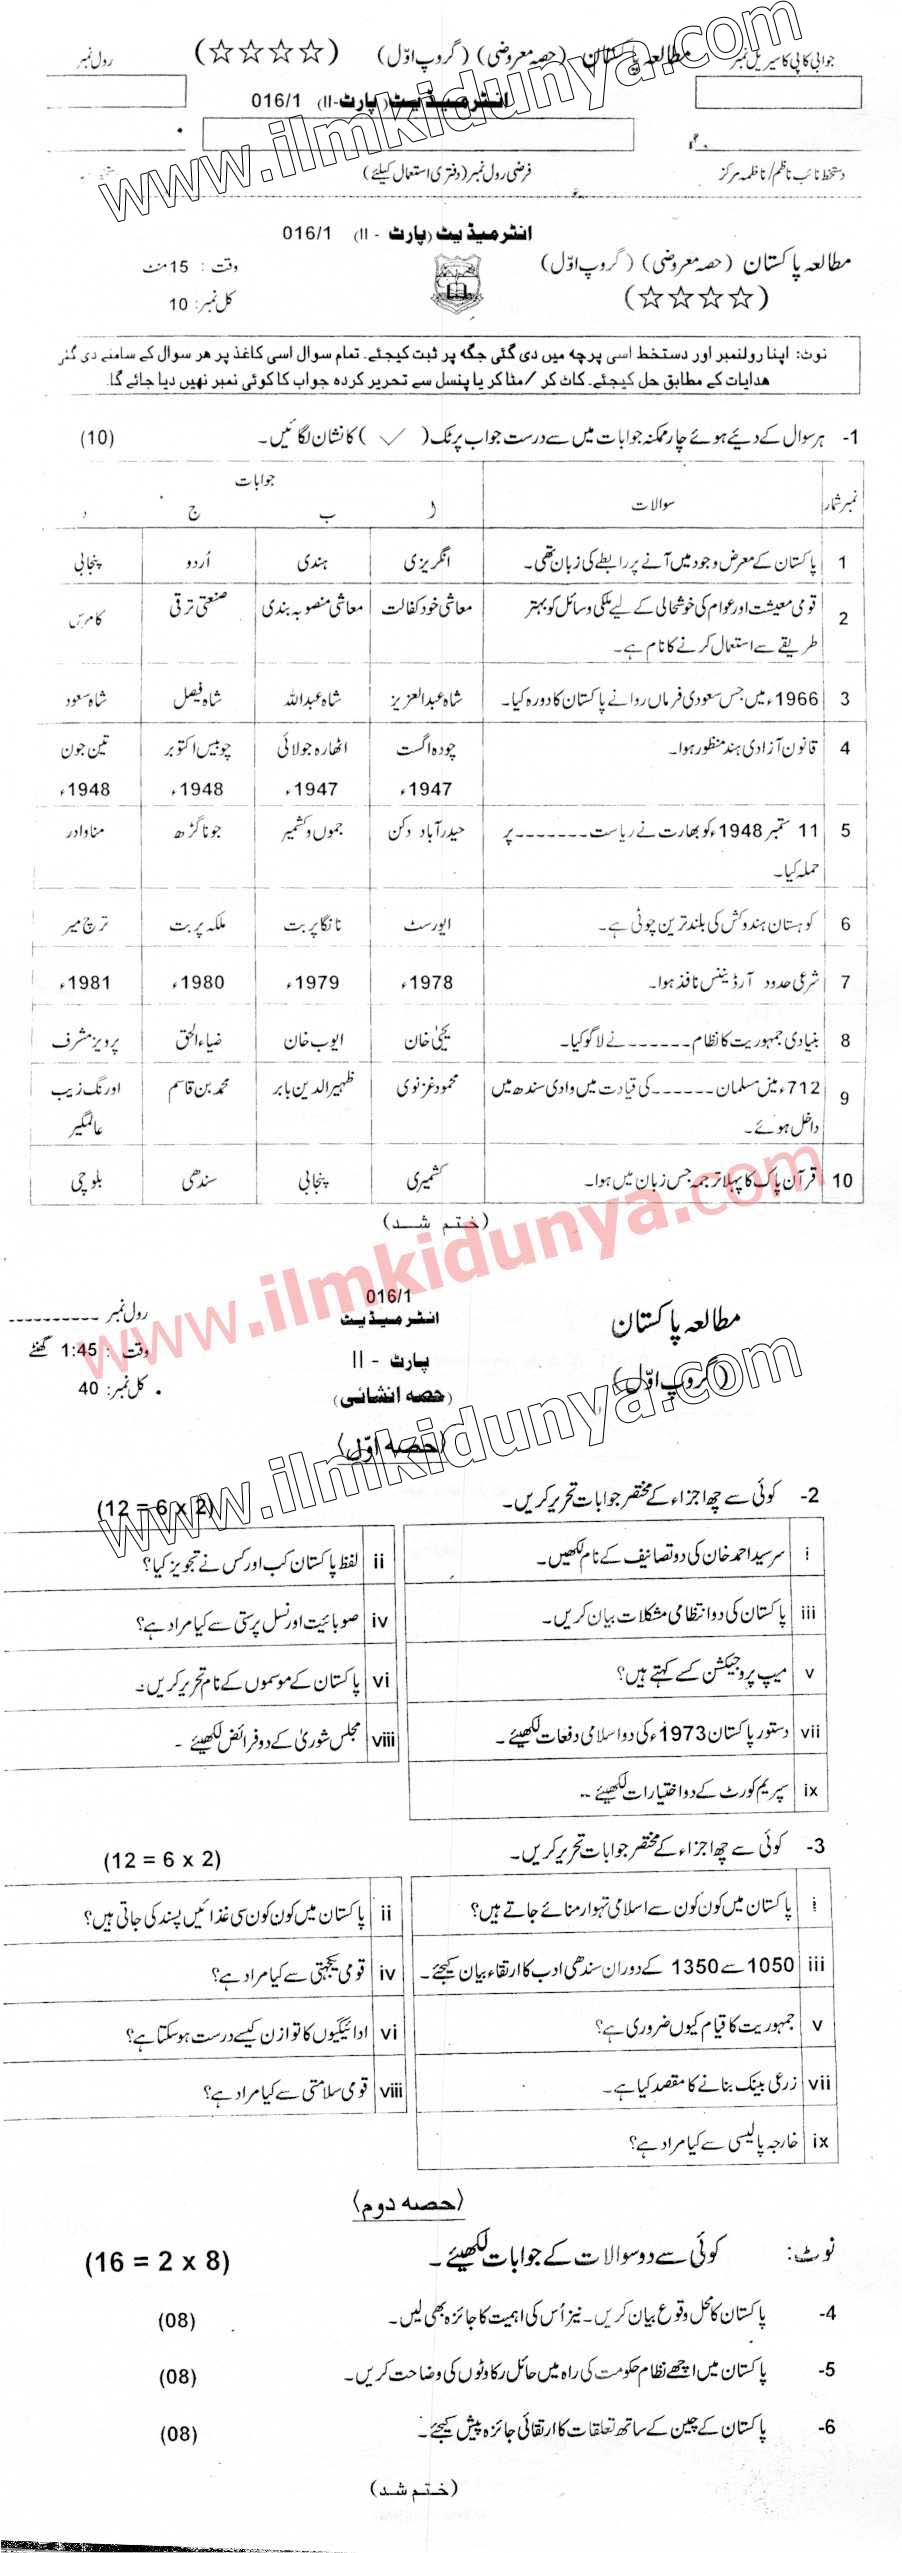 جوابی کاپی کا سیریل نمبر مطالعہ پاکستان (حصہ معروضی) (گروپ اوّل) (☆☆☆☆) رول نمبر
انٹرمیڈیٹ (پارٹ-II) 016/1
دستخط نائب ناظم/ناظمہ مرکز فرضی رول نمبر (دفتری استعمال کیلئے)
www.ilmkidunya.com
انٹرمیڈیٹ (پارٹ - II) 016/1
مطالعہ پاکستان (حصہ معروضی) (گروپ اوّل) وقت : 15 منٹ
(☆☆☆☆) کل نمبر: 10
نوٹ: اپنا رولنمبر اور دستخط اسی پرچہ میں دی گئی جگہ پر ثبت کیجئے۔ تمام سوال اسی کاغذ پر ہر سوال کے سامنے دی گئی
ھدایات کے مطابق حل کیجئے۔ کاٹ کر /مٹا کر یا پنسل سے تحریر کردہ جواب کا کوئی نمبر نہیں دیا جائے گا۔
1- ہر سوال کے دیئے ہوئے چار ممکنہ جوابات میں سے درست جواب پر ٹک (✓) کا نشان لگائیں۔ (10)
نمبر شمار سوالات جوابات
ا ب ج د
1 پاکستان کے معرض وجود میں آنے پر رابطے کی زبان تھی۔ انگریزی ہندی اُردو پنجابی
2 قومی معیشت اور عوام کی خوشحالی کے لیے ملکی وسائل کو بہتر معاشی خود کفالت معاشی منصوبہ بندی صنعتی ترقی کامرس
طریقے سے استعمال کرنے کا نام ہے۔
3 1966ء میں جس سعودی فرماں روا نے پاکستان کا دورہ کیا۔ شاہ عبدالعزیز شاہ عبداللہ شاہ فیصل شاہ سعود
4 قانون آزادی ہند منظور ہوا۔ چودہ اگست اٹھارہ جولائی چوبیس اکتوبر تین جون
1947ء 1947ء 1948ء 1948ء
5 11 ستمبر 1948ء کو بھارت نے ریاست ------- پر حیدرآباد دکن جموں وکشمیر جوناگڑھ مناوادر
حملہ کیا۔
6 کوہستان ہندوکش کی بلند ترین چوٹی ہے۔ ایورسٹ نانگا پربت ملکہ پربت ترچ میر
7 شرعی حدود آرڈیننس نافذ ہوا۔ 1978ء 1979ء 1980ء 1981ء
8 بنیادی جمہوریت کا نظام ------ نے لاگو کیا۔ یحییٰ خان ایوب خان ضیاء الحق پرویز مشرف
9 712ء میں مسلمان ------ کی قیادت میں وادی سندھ میں محمود غزنوی ظہیر الدین بابر محمد بن قاسم اورنگ زیب
داخل ہوئے۔ عالمگیر
10 قرآن پاک کا پہلا ترجمہ جس زبان میں ہوا۔ کشمیری پنجابی سندھی بلوچی
(ختم شد)
www.ilmkidunya.com
مطالعہ پاکستان 016/1 رول نمبر ----------
انٹرمیڈیٹ
(گروپ اوّل) پارٹ - II وقت : 1:45 گھنٹے
(حصہ انشائی) کل نمبر: 40
(حصہ اوّل)
www.ilmkidunya.com
2- کوئی سے چھ اجزاء کے مختصر جوابات تحریر کریں۔ (12 = 6 x 2)
i سرسید احمد خان کی دو تصانیف کے نام لکھیں۔ ii لفظ پاکستان کب اور کس نے تجویز کیا؟
iii پاکستان کی دو انتظامی مشکلات بیان کریں۔ iv صوبائیت اور نسل پرستی سے کیا مراد ہے؟
v میپ پروجیکشن کسے کہتے ہیں؟ vi پاکستان کے موسموں کے نام تحریر کریں۔
vii دستور پاکستان 1973ء کی دو اسلامی دفعات لکھیئے۔ viii مجلس شوریٰ کے دو فرائض لکھیئے۔
ix سپریم کورٹ کے دو اختیارات لکھیئے۔
3- کوئی سے چھ اجزاء کے مختصر جوابات تحریر کریں۔ (12 = 6 x 2)
i پاکستان میں کون کون سے اسلامی تہوار منائے جاتے ہیں؟ ii پاکستان میں کون کون سی غذائیں پسند کی جاتی ہیں؟
iii 1050 سے 1350 کے دوران سندھی ادب کا ارتقاء بیان کیجئے۔ iv قومی یکجہتی سے کیا مراد ہے؟
v جمہوریت کا قیام کیوں ضروری ہے؟ vi ادائیگیوں کا توازن کیسے درست ہوسکتا ہے؟
vii زرعی بینک بنانے کا مقصد کیا ہے۔ viii قومی سلامتی سے کیا مراد ہے؟
ix خارجہ پالیسی سے کیا مراد ہے؟
(حصہ دوم)
نوٹ: کوئی سے دو سوالات کے جوابات لکھیئے۔ (16 = 2 x 8)
4- پاکستان کا محل وقوع بیان کریں۔ نیز اُس کی اہمیت کا جائزہ بھی لیں۔ (08)
5- پاکستان میں اچھے نظام حکومت کی راہ میں حائل رکاوٹوں کی وضاحت کریں۔ (08)
6- پاکستان کے چین کے ساتھ تعلقات کا ارتقائی جائزہ پیش کیجئے۔ (08)
(ختم شد)